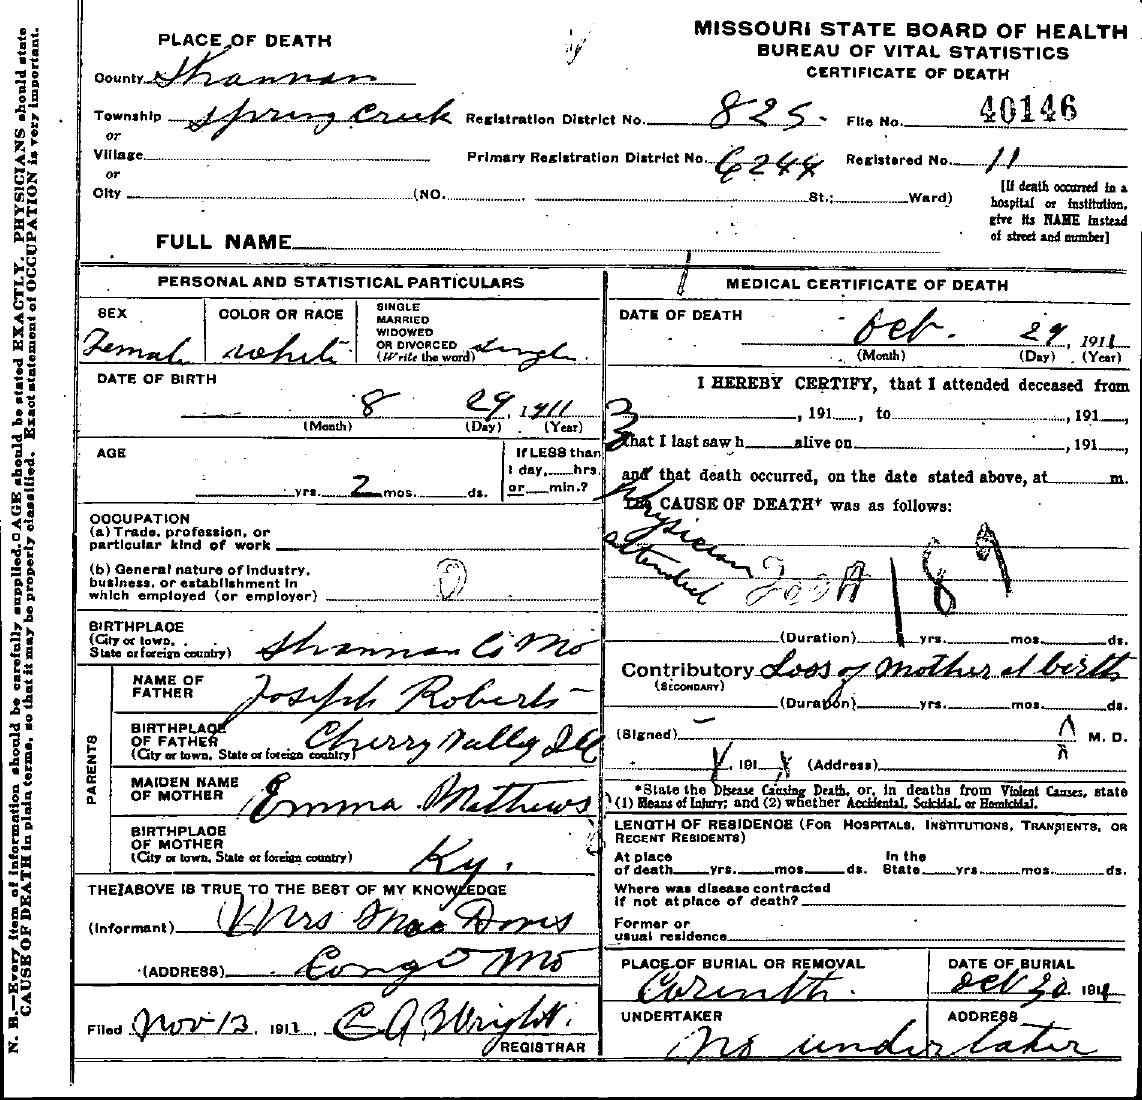 MISSOURI STATE BOARD OF HEALTH
BUREAU OF VITAL STATISTICS
CERTIFICATE OF DEATH
PLACE OF DEATH
County Shannon
Township Spring Creek Registration District No. 825 File No. 40146
or
Village Primary Registration District No. 6244 Registered No. 11
or
City (NO. St.; Ward)
[If death occurred in a
hospital or institution,
give its NAME instead
of street and number]
FULL NAME
PERSONAL AND STATISTICAL PARTICULARS
SEX
Female
COLOR OR RACE
white
SINGLE
MARRIED
WIDOWED
OR DIVORCED
(Write the word) Single
DATE OF BIRTH
8 29, 1911
(Month) (Day) (Year)
AGE
If LESS than
1 day, hrs.
yrs. 2 mos. ds. or min.?
OCCUPATION
(a) Trade, profession, or
particular kind of work
(b) General nature of industry,
business, or establishment in
which employed (or employer)
BIRTHPLACE
(City or town,
State or foreign country) Shannon Co Mo
PARENTS
NAME OF
FATHER Joseph Roberts
BIRTHPLACE
OF FATHER
(City or town, State or foreign country) Cherry Valley Ill
MAIDEN NAME
OF MOTHER Emma Mathews
BIRTHPLACE
OF MOTHER
(City or town, State or foreign country) Ky.
THE ABOVE IS TRUE TO THE BEST OF MY KNOWLEDGE
(Informant) Mrs Mae Doris
(ADDRESS) Congo Mo
Filed Nov 13, 1911, C A B Wright.
REGISTRAR
MEDICAL CERTIFICATE OF DEATH
DATE OF DEATH
Oct. 29, 1911
(Month) (Day) (Year)
I HEREBY CERTIFY, that I attended deceased from
, 191 , to , 191 ,
that I last saw h alive on , 191 ,
and that death occurred, on the date stated above, at m.
The CAUSE OF DEATH* was as follows:
Physician
attended
200A 189
(Duration) yrs. mos. ds.
Contributory Loss of mother at birth
(SECONDARY)
(Duration) yrs. mos. ds.
(Signed) M. D.
, 191 (Address)
*State the Disease Causing Death, or, in deaths from Violent Causes, state
(1) Means of Injury; and (2) whether Accidental, Suicidal, or Homicidal.
LENGTH OF RESIDENCE (FOR HOSPITALS, INSTITUTIONS, TRANSIENTS, OR
RECENT RESIDENTS)
At place In the
of death yrs. mos. ds. State yrs. mos. ds.
Where was disease contracted
if not at place of death?
Former or
usual residence
PLACE OF BURIAL OR REMOVAL
Corinth.
DATE OF BURIAL
Oct 30, 1911
UNDERTAKER
ADDRESS
No undertaker
N. B.—Every item of information should be carefully supplied. AGE should be stated EXACTLY. PHYSICIANS should state
CAUSE OF DEATH in plain terms, so that it may be properly classified. Exact statement of OCCUPATION is very important.